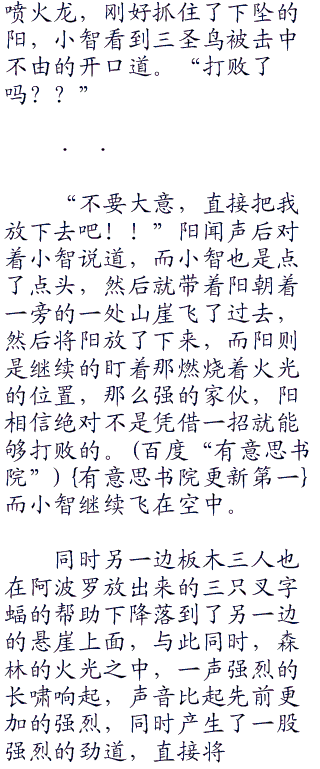 喷火龙，刚好抓住了下坠的
阳，小智看到三圣鸟被击中
不由的开口道。“打败了
吗？？”
． ．
“不要大意，直接把我
放下去吧！！”阳闻声后对
着小智说道，而小智也是点
了点头，然后就带着阳朝着
一旁的一处山崖飞了过去，
然后将阳放了下来，而阳则
是继续的盯着那燃烧着火光
的位置，那么强的家伙，阳
相信绝对不是凭借一招就能
够打败的。(百度“有意思书
院”) {有意思书院更新第一}
而小智继续飞在空中。
同时另一边板木三人也
在阿波罗放出来的三只叉字
蝠的帮助下降落到了另一边
的悬崖上面，与此同时，森
林的火光之中，一声强烈的
长啸响起，声音比起先前更
加的强烈，同时产生了一股
强烈的劲道，直接将